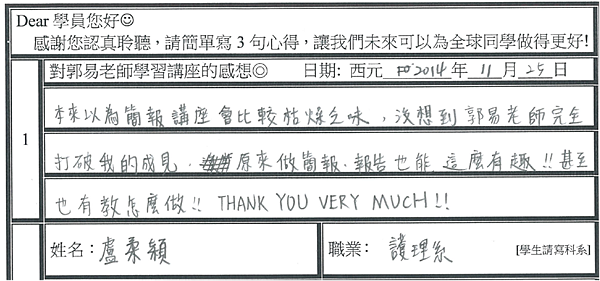 Dear 學員您好☺
感謝您認真聆聽，請簡單寫 3 句心得，讓我們未來可以為全球同學做得更好!
對郭易老師學習講座的感想◎ 日期: 西元 2014 年 11 月 25 日
1
本來以為簡報講座會比較枯燥乏味，沒想到郭易老師完全
打破我的成見，原來做簡報、報告也能這麼有趣!! 甚至
也有教怎麼做!! THANK YOU VERY MUCH!!
姓名：盧柔穎 職業： 護理系 [學生請寫科系]